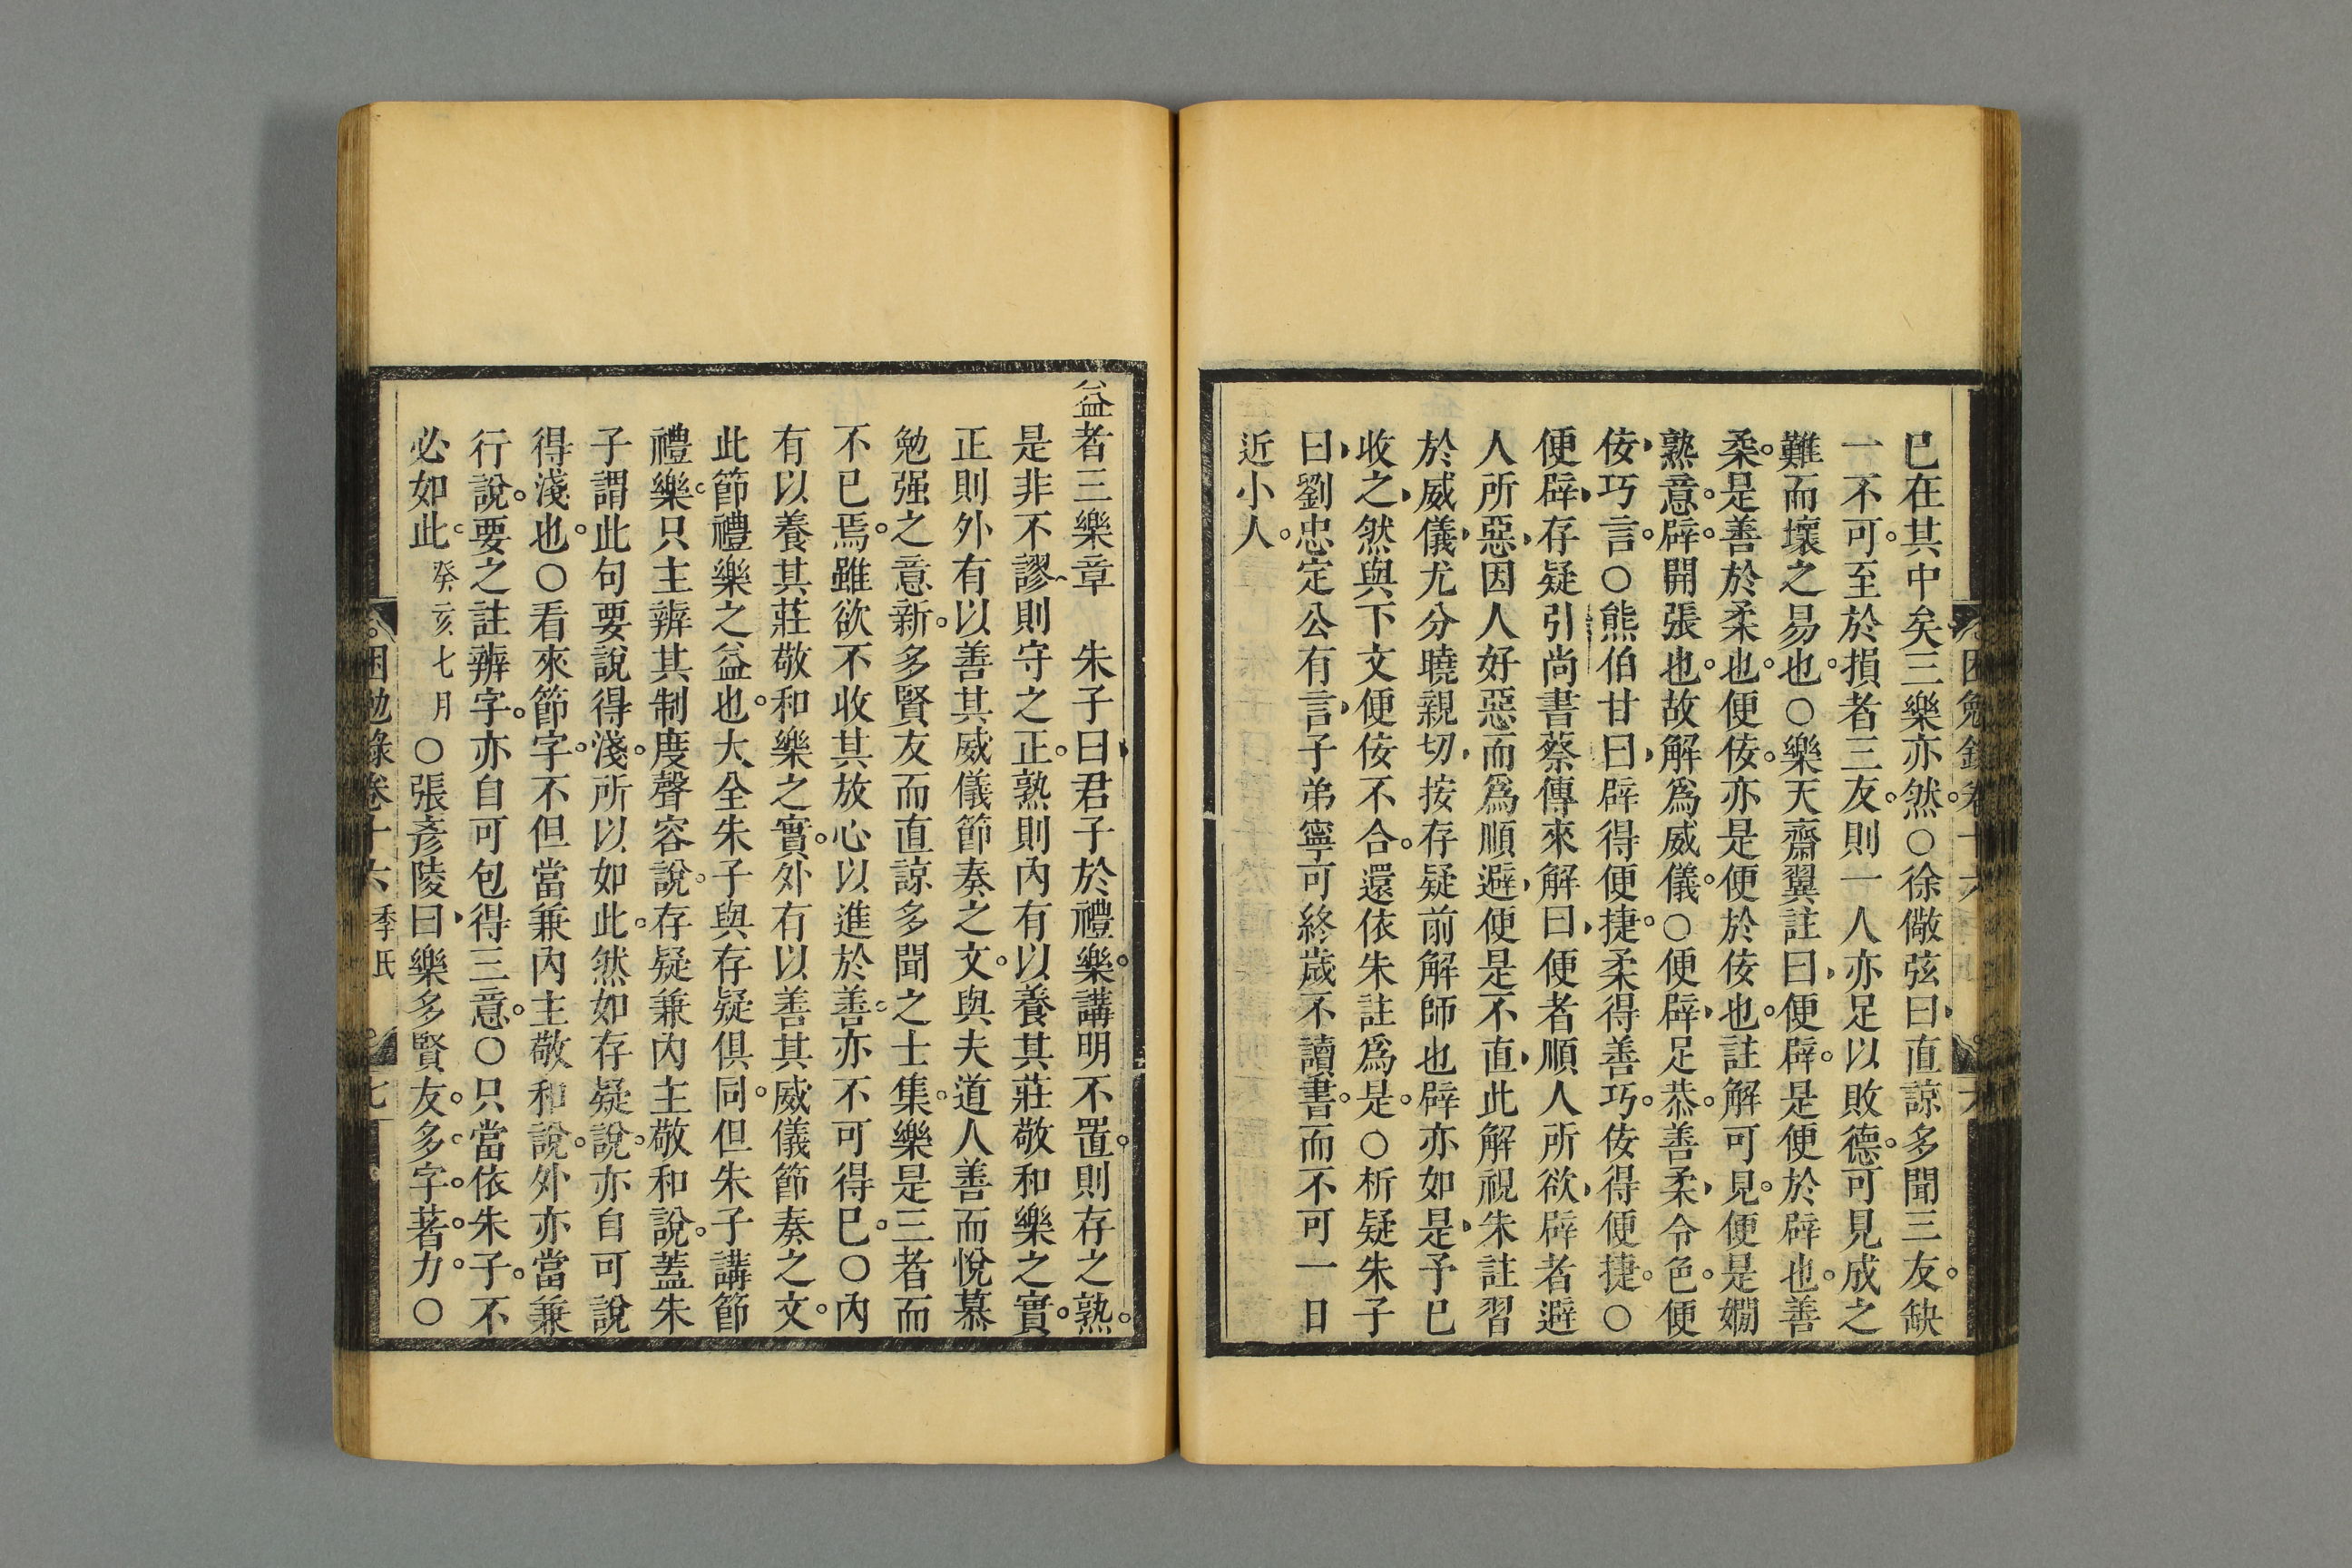 已在其中矣三樂亦然。○徐儆弦曰直諒多聞三友。缺
一不可。至於損者三友。則一人亦足以敗德。可見成之
難而壞之易也。○樂天齋翼註曰便辟。是便於辟也。善
柔。是善於柔也。便佞。亦是便於佞也。註解可見。便是嫺
熟意。辟。開張也。故解爲威儀。○便辟足恭。善柔令色。便
佞巧言。○熊伯甘曰辟得便捷。柔得善巧。佞得便捷。○
便辟存疑引尚書蔡傳來解曰便者順人所欲辟者避
人所惡因人好惡而爲順避便是不直此解視朱註習
於威儀尤分曉親切按存疑前解師也辟亦如是予已
收之然與下文便佞不合。還依朱註爲是。○析疑朱子
曰劉忠定公有言子弟寧可終歲不讀書。而不可一日
近小人。
益者三樂章　朱子曰君子於禮樂。講明不置。則存之熟。
是非不謬則守之正。熟則內有以養其莊敬和樂之實。
正則外有以善其威儀節奏之文。與夫道人善而悅慕
勉强之意新。多賢友而直諒多聞之士集。樂是三者而
不已焉。雖欲不收其放心以進於善。亦不可得已。○內
有以養其莊敬和樂之實。外有以善其威儀節奏之文。
此節禮樂之益也。大全朱子與存疑俱同。但朱子講節
禮樂。只主辨其制度聲容說。存疑兼內主敬和說。蓋朱
子謂此句要說得淺。所以如此。然如存疑說。亦自可說
得淺也。○看來節字。不但當兼內主敬和說。外亦當兼
行說。要之註辨字。亦自可包得三意。○只當依朱子。不
必如此。癸亥七月○張彥陵曰樂多賢友。多字。著力。○
困勉錄卷十六　季氏　七